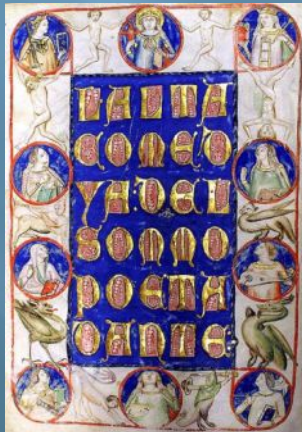 LALTA
COMED
YADEL
SOMMO
POETA
DANTE